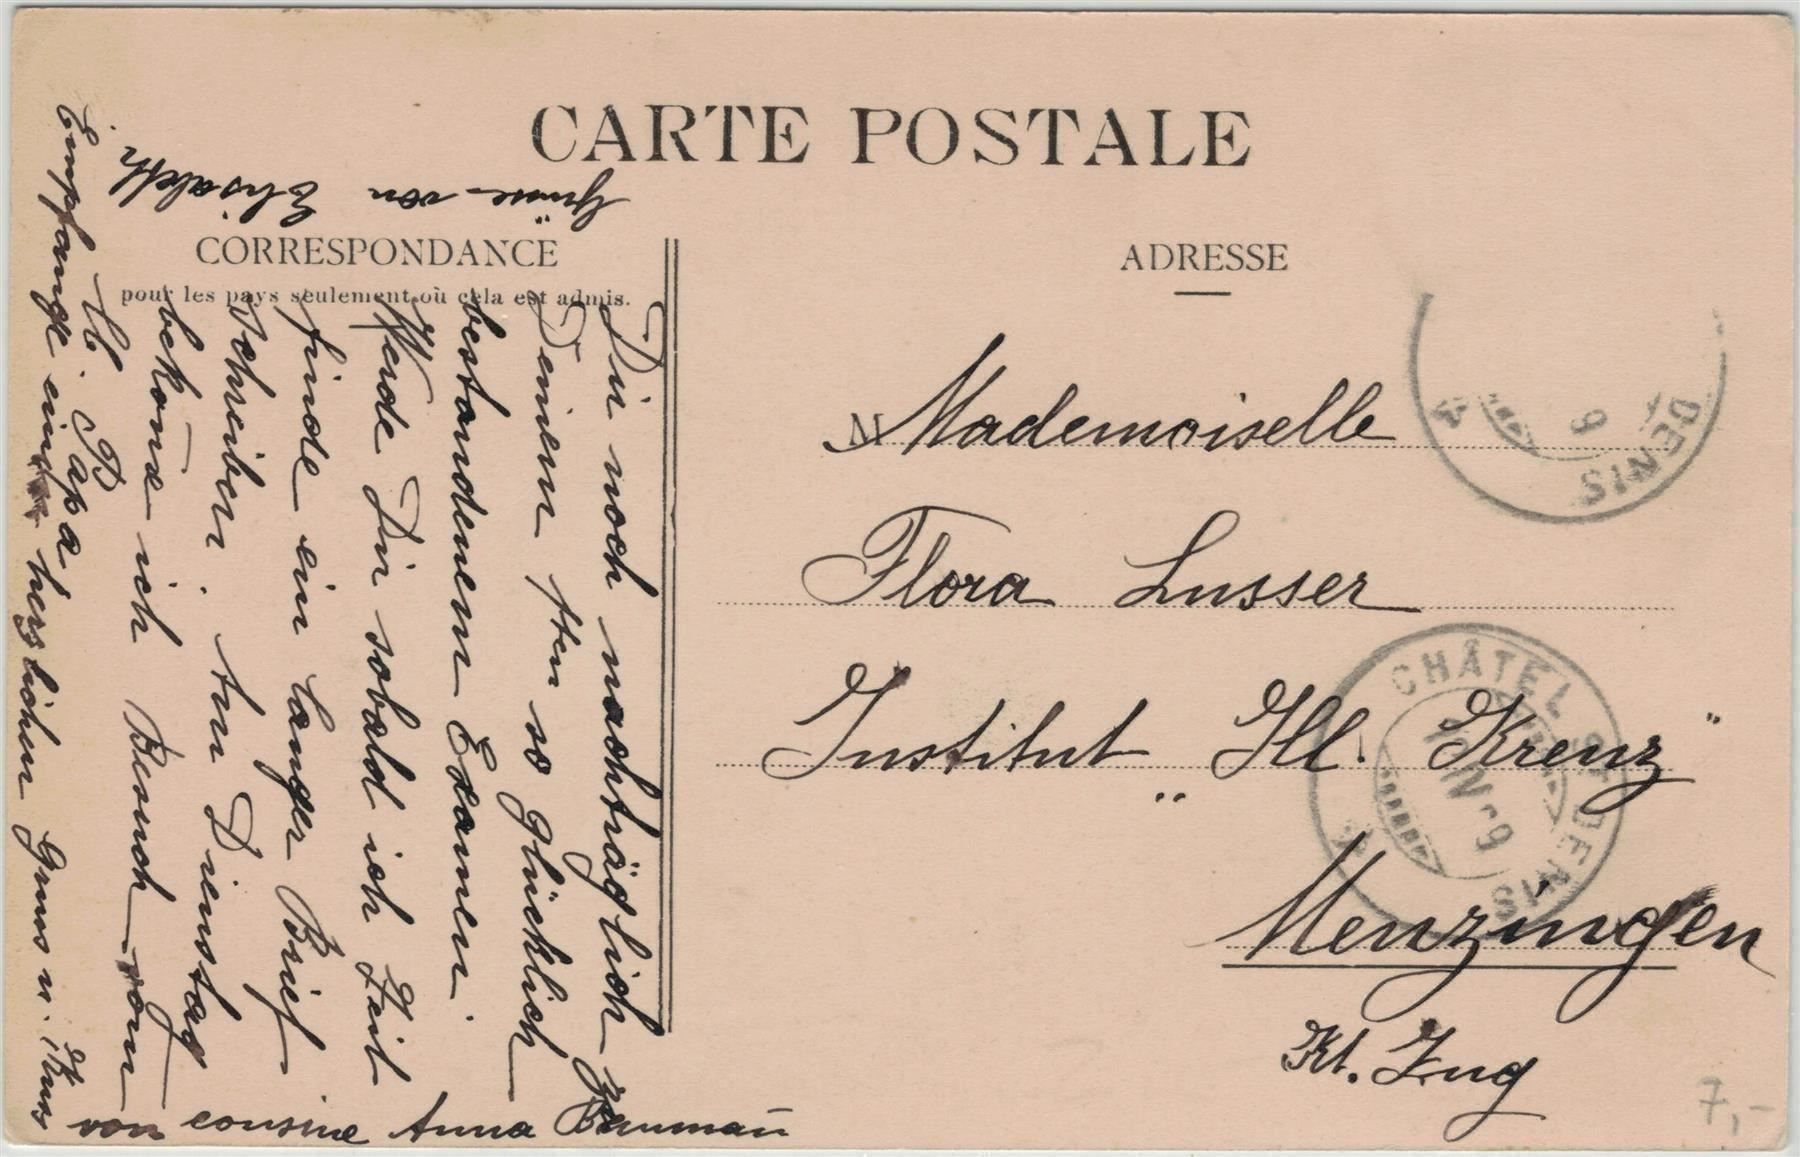 CARTE POSTALE
CORRESPONDANCE
pour les pays seulement où cela est admis.
ADRESSE
Mademoiselle
Flora Lusser
Institut „Hl. Kreuz"
Menzingen
Kt. Zug
CHÂTEL ST DENIS
DENIS
9
7,-
Dir noch nachträglich zu
Deinem so glücklich
bestandenem Examen
Werde Dir sobald ich Zeit
finde ein langer Brief
schreiben. Am Dienstag
bekome ich Besuch vom
lb. Papa
Empfange herzlichen Gruss u. Kuss
von cousine Anna
Grüsse von Elisabeth